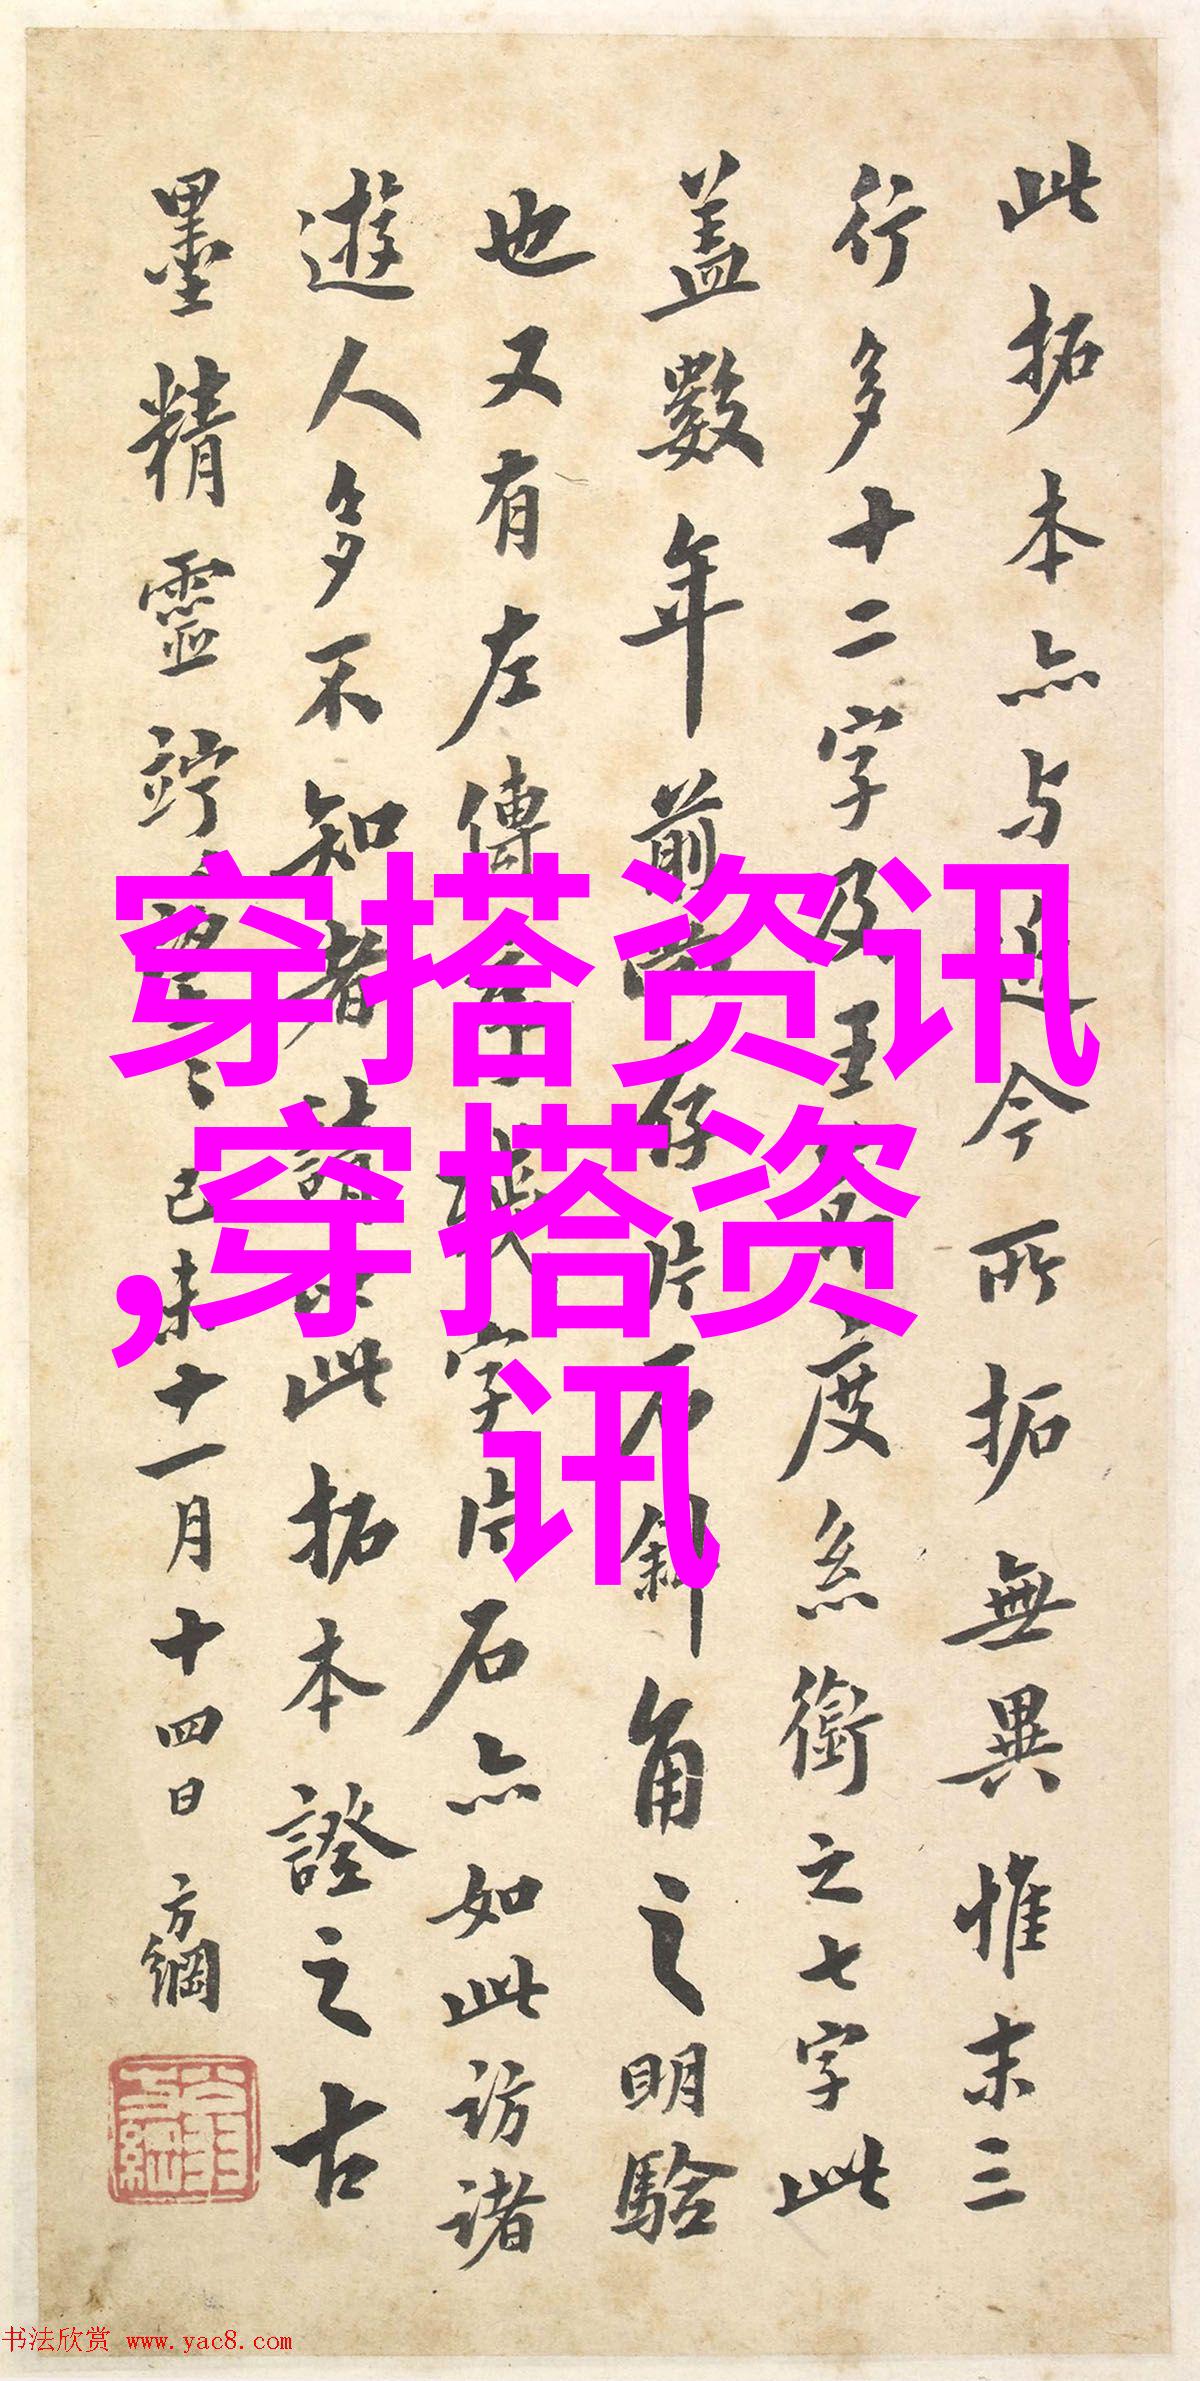 此拓本亦与近今所拓無異惟末三
行多十二字及王
度系衔之七字此
蓋數年前尚存片石斜角之明驗
也又有左傳
字片石亦如此访诸
遊人多不知者請以此拓本證之古
墨精靈
已未十一月十四日方綱
穿搭资讯
,穿搭资
讯
书法欣赏 www.yac8.com